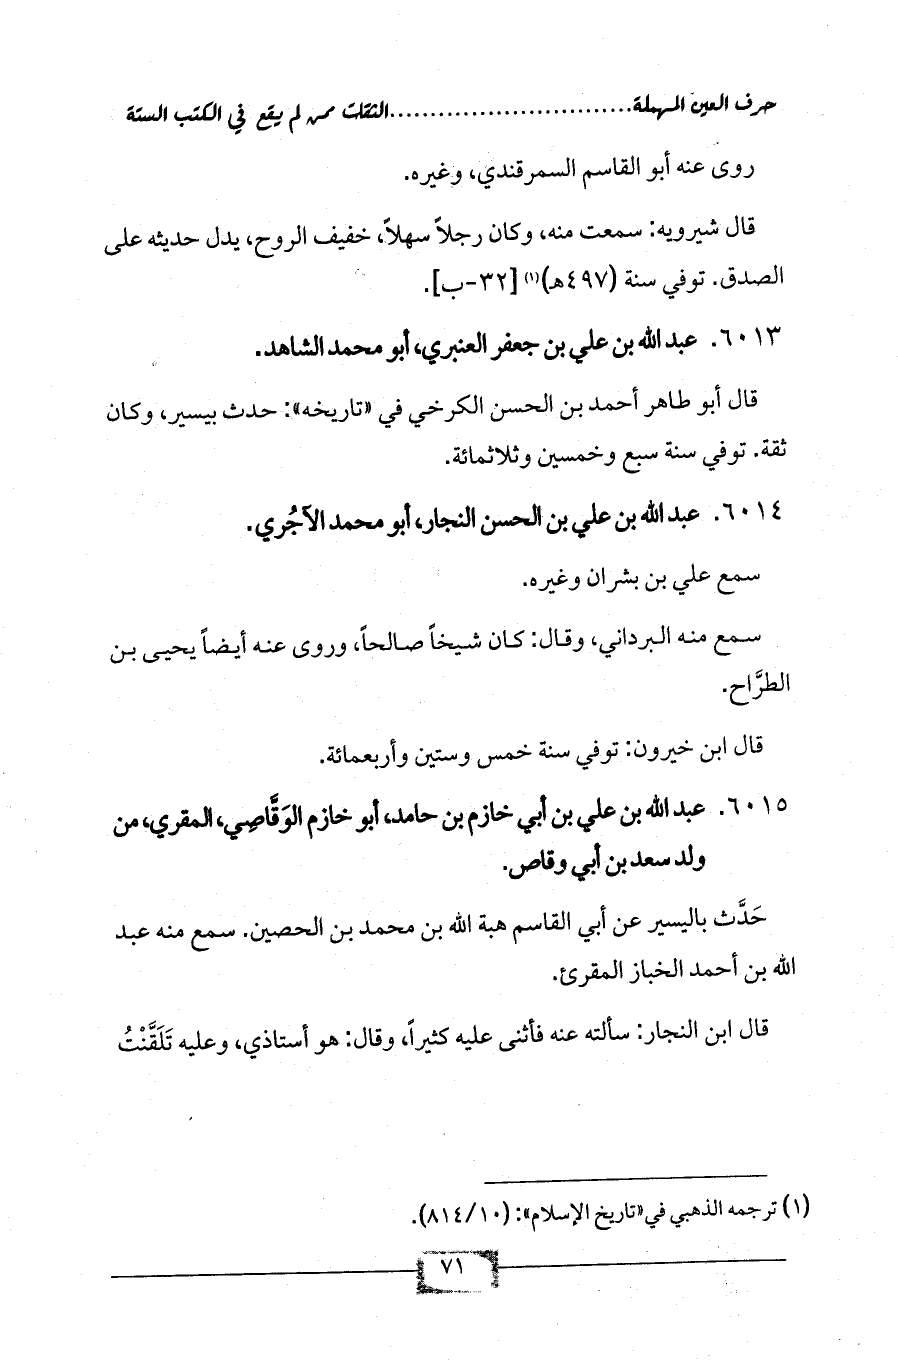 حرف العين المهملة..............................الثقات ممن لم يقع في الكتب الستة
روى عنه أبو القاسم السمرقندي، وغيره.
قال شيرويه: سمعت منه، وكان رجلاً سهلاً، خفيف الروح، يدل حديثه على
الصدق. توفي سنة (٤٩٧هـ)(١) [٣٢-ب].
٦٠١٣. عبد الله بن علي بن جعفر العنبري، أبو محمد الشاهد.
قال أبو طاهر أحمد بن الحسن الكرخي في «تاريخه»: حدث بيسير، وكان
ثقة. توفي سنة سبع وخمسين وثلاثمائة.
٦٠١٤. عبد الله بن علي بن الحسن النجار، أبو محمد الآجُري.
سمع علي بن بشران وغيره.
سمع منه البرداني، وقال: كان شيخاً صالحاً، وروى عنه أيضاً يحيى بن
الطرَّاح.
قال ابن خيرون: توفي سنة خمس وستين وأربعمائة.
٦٠١٥. عبد الله بن علي بن أبي خازم بن حامد، أبو خازم الوَقَّاصِي، المقري، من
ولد سعد بن أبي وقاص.
حَدَّث باليسير عن أبي القاسم هبة الله بن محمد بن الحصين. سمع منه عبد
الله بن أحمد الخباز المقرئ.
قال ابن النجار: سألته عنه فأثنى عليه كثيراً، وقال: هو أستاذي، وعليه تَلَقَّنْتُ
(١) ترجمه الذهبي في «تاريخ الإسلام»: (٨١٤/١٠).
٧١